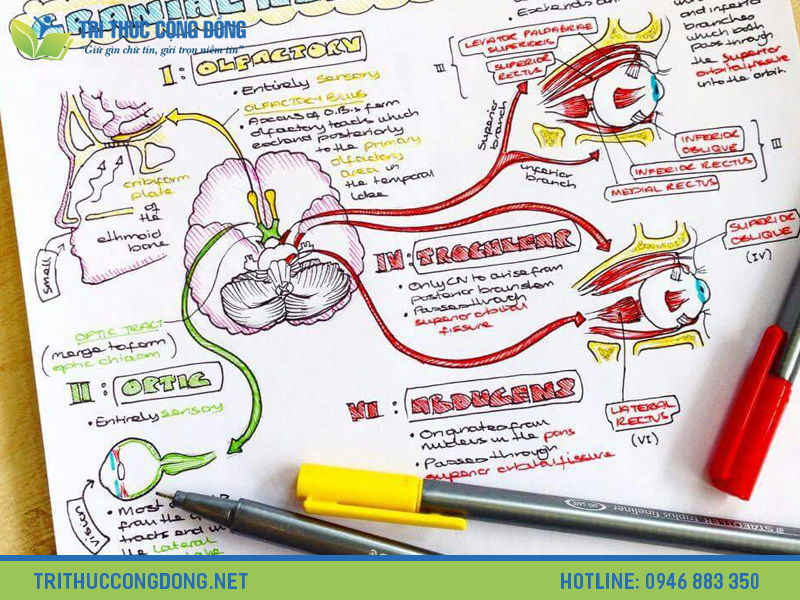 TRI THỨC CỘNG ĐỒNG
"Giữ gìn chữ tín, gửi trọn niềm tin"
I: OLFACTORY
• Entirely sensory
OLFACTORY BULBS
olfactory tracts which
extend posteriorly
to the primary
olfactory
area in
the temporal
lobe
cribiform
plate
of
the
ethmoid
bone
smell
III
LEVATOR PALPABRAE
SUPERIORIS
SUPERIOR
RECTUS
superior
branch
inferior
branch
and inferior
branches
which both
pass through
the superior
orbital fissure
into the orbit.
INFERIOR
OBLIQUE
INFERIOR RECTUS
MEDIAL RECTUS
III
IV: TROCHLEAR
• Only CN to arise from
posterior brainstem
• Passes through
superior orbital
fissure
SUPERIOR
OBLIQUE
(IV)
OPTIC TRACT
(merge to form
optic chiasm)
II: OPTIC
• Entirely sensory
vision
• Most
from the
tracts and
the lateral
VI: ABDUCENS
• Originates from
nucleus in the pons
• Passes through
superior orbital fissure
LATERAL
RECTUS
(VI)
STAEDTLER triplus fineliner
TRITHUCCONGDONG.NET
HOTLINE: 0946 883 350